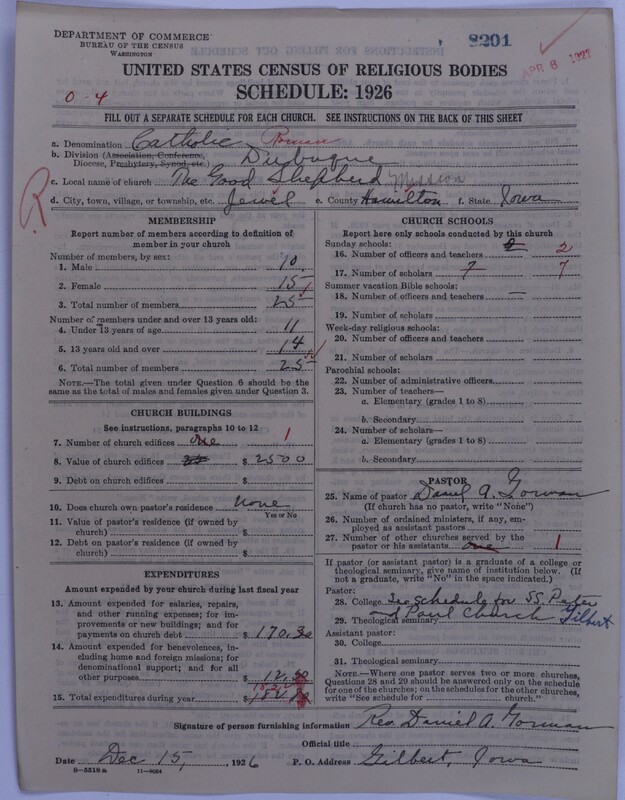 DEPARTMENT OF COMMERCE
BUREAU OF THE CENSUS
WASHINGTON
8201
APR 8 1927
UNITED STATES CENSUS OF RELIGIOUS BODIES
SCHEDULE: 1926
0-4
FILL OUT A SEPARATE SCHEDULE FOR EACH CHURCH. SEE INSTRUCTIONS ON THE BACK OF THIS SHEET
R
a. Denomination Catholic Roman
b. Division (Association, Conference, Diocese, Presbytery, Synod, etc.) Dubuque
c. Local name of church The Good Shepherd Mission
d. City, town, village, or township, etc. Jewel e. County Hamilton f. State Iowa
MEMBERSHIP
Report number of members according to definition of member in your church
Number of members, by sex:
1. Male 10
2. Female 15
3. Total number of members 25
Number of members under and over 13 years old:
4. Under 13 years of age 11
5. 13 years old and over 14
6. Total number of members 25
NOTE.—The total given under Question 6 should be the same as the total of males and females given under Question 3.
CHURCH BUILDINGS
See instructions, paragraphs 10 to 12
7. Number of church edifices one 1
8. Value of church edifices $ 2500
9. Debt on church edifices $
10. Does church own pastor's residence none
Yes or No
11. Value of pastor's residence (if owned by church) $
12. Debt on pastor's residence (if owned by church) $
EXPENDITURES
Amount expended by your church during last fiscal year
13. Amount expended for salaries, repairs, and other running expenses; for improvements or new buildings; and for payments on church debt $ 170.30
14. Amount expended for benevolences, including home and foreign missions; for denominational support; and for all other purposes $ 12.50
15. Total expenditures during year $
CHURCH SCHOOLS
Report here only schools conducted by this church
Sunday schools:
16. Number of officers and teachers 2 2
17. Number of scholars 7 7
Summer vacation Bible schools:
18. Number of officers and teachers —
19. Number of scholars
Week-day religious schools:
20. Number of officers and teachers
21. Number of scholars
Parochial schools:
22. Number of administrative officers
23. Number of teachers—
a. Elementary (grades 1 to 8)
b. Secondary
24. Number of scholars—
a. Elementary (grades 1 to 8)
b. Secondary
PASTOR
25. Name of pastor Daniel A. Gorman
(If church has no pastor, write "None")
26. Number of ordained ministers, if any, employed as assistant pastors
27. Number of other churches served by the pastor or his assistants one 1
If pastor (or assistant pastor) is a graduate of a college or theological seminary, give name of institution below. (If not a graduate, write "No" in the space indicated.)
Pastor:
28. College See schedule for SS. Peter
29. Theological seminary and Paul Church Gilbert
Assistant pastor:
30. College
31. Theological seminary
NOTE.—Where one pastor serves two or more churches, Questions 28 and 29 should be answered only on the schedule for one of the churches; on the schedules for the other churches, write "See schedule for church."
Signature of person furnishing information Rev. Daniel A. Gorman
Official title
Date Dec 15, 1926 P. O. Address Gilbert, Iowa
8—5518a 11—9064